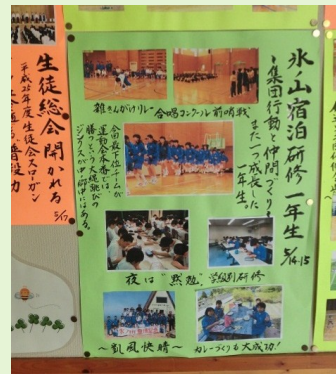 氷ノ山宿泊研修 一年生 5/14・15
集団行動と仲間づくり
また一つ成長した
一年生。
雑きんがけリレー
合唱コンクール前哨戦
今回最下位のチームが
運動会本番では
勝つという大縄跳びの
ジンクスが中中にはある。
夜は"黙想"、学級別研修
～凱風快晴～
カレーづくりも大成功!
生徒総会開かれる 5/17
平成26年度生徒会スローガン